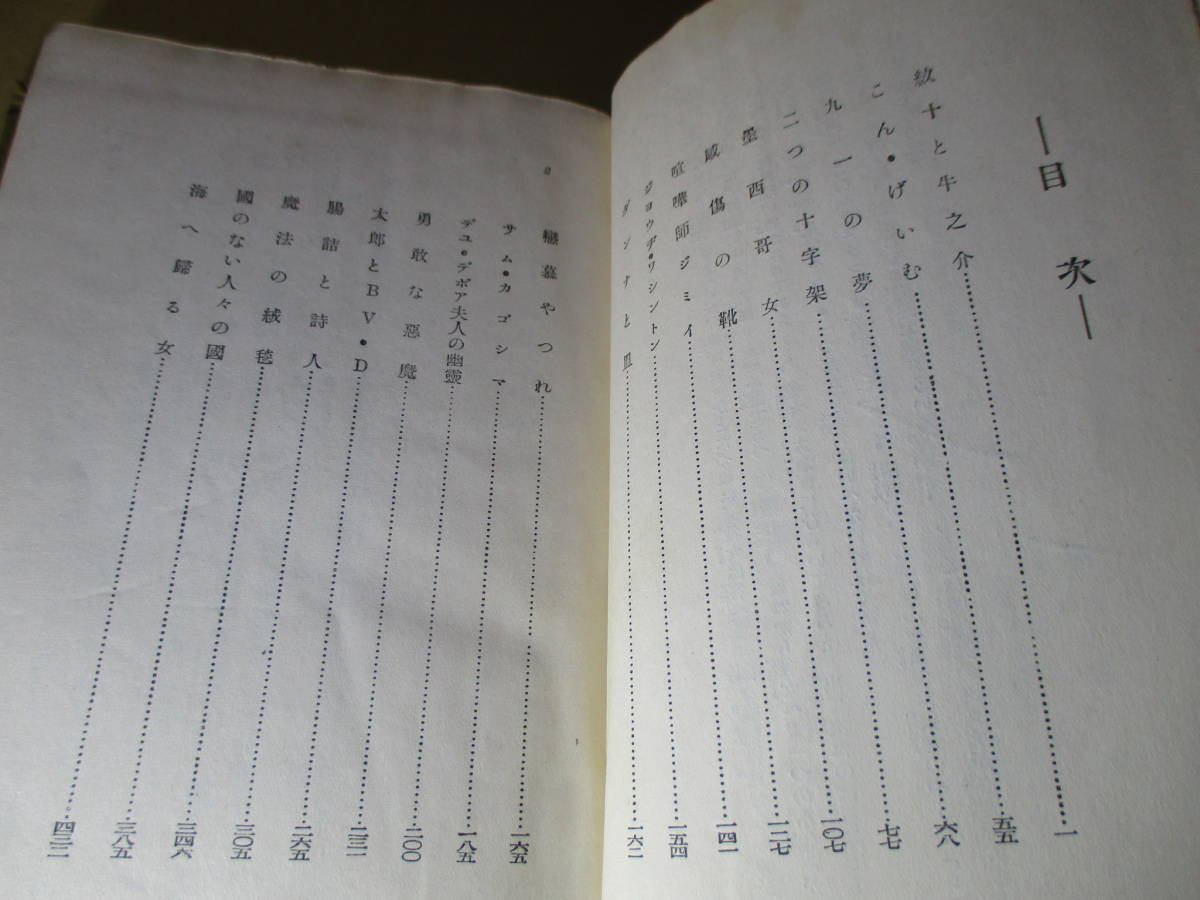 ―目次―
紋十と牛之介…………一
こん・げいむ…………五五
九一の夢…………六八
二つの十字架…………七七
墨西哥女…………一〇七
感傷の靴…………一二七
喧嘩師ジミイ…………一四一
ジヨウヂ・ワシントン…………一五四
ダンナと皿…………一六二
2
戀慕やつれ…………一六五
サム・カゴシマ…………一八五
デユ・デボア夫人の幽靈…………二〇〇
勇敢な惡魔…………二三一
太郎とBV・D…………二六五
腸詰と詩人…………三〇五
魔法の絨毯…………三四六
國のない人々の國…………三八五
海へ歸る女…………